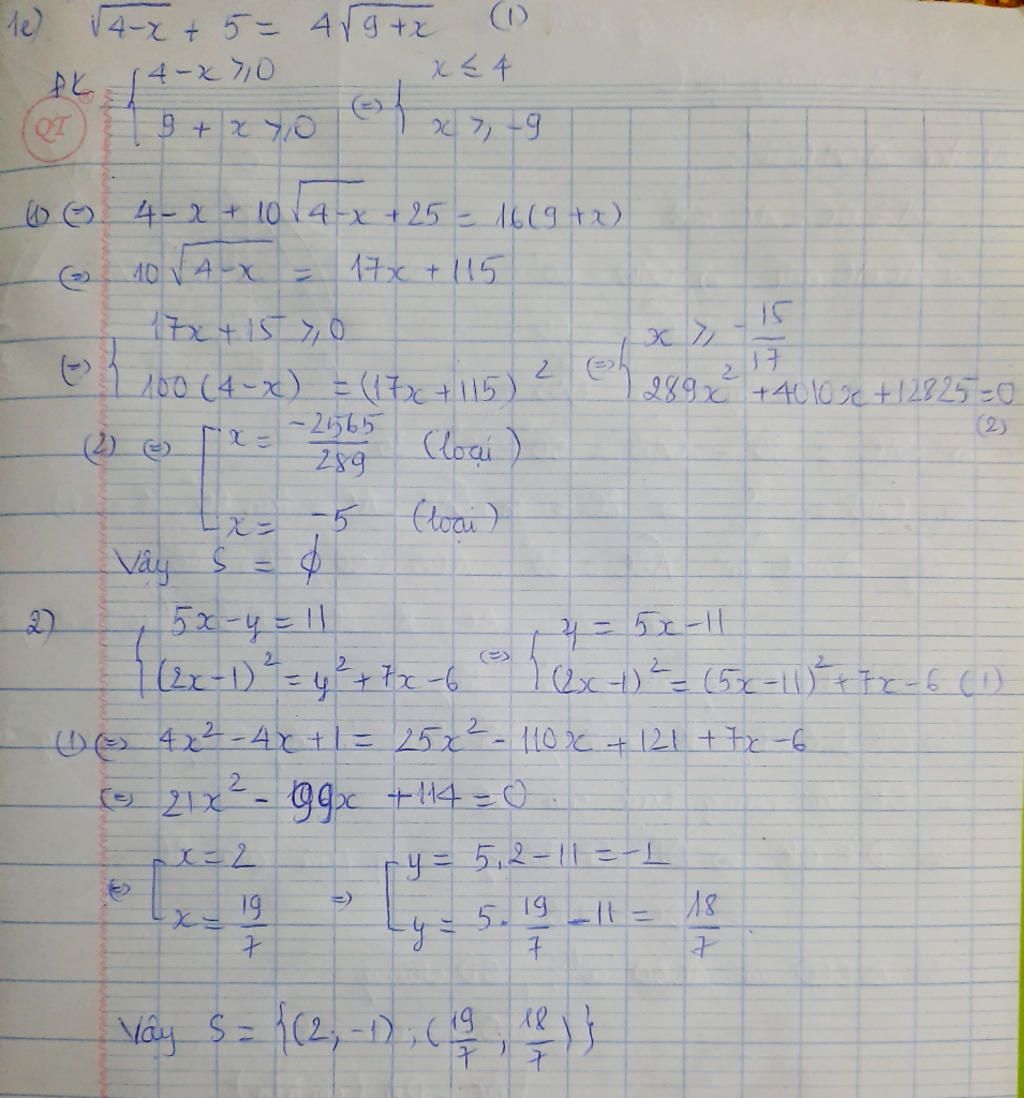 1c) √(4-x) + 5 = 4√(9+x) (1)
ĐK { 4-x ≥ 0 (=) { x ≤ 4
QT 9 + x ≥ 0 x ≥ -9
(1) (=) 4-x + 10√(4-x) + 25 = 16(9+x)
(=) 10√(4-x) = 17x + 115
(=) { 17x + 15 ≥ 0 (=) { x ≥ -15/17
100(4-x) = (17x+115)² 289x² + 4010x + 12825 = 0 (2)
(2) (=) [ x = -2565/289 (loại)
x = -5 (loại)
Vậy S = ∅
2) { 5x-y = 11 (=) { y = 5x-11
(2x-1)² = y² + 7x-6 (2x-1)² = (5x-11)² + 7x-6 (1)
(1) (=) 4x² - 4x + 1 = 25x² - 110x + 121 + 7x-6
(=) 21x² - 99x + 114 = 0
(=) [ x = 2 => [ y = 5.2-11 = -1
x = 19/7 y = 5.19/7 - 11 = 18/7
Vậy S = {(2; -1); (19/7; 18/7)}